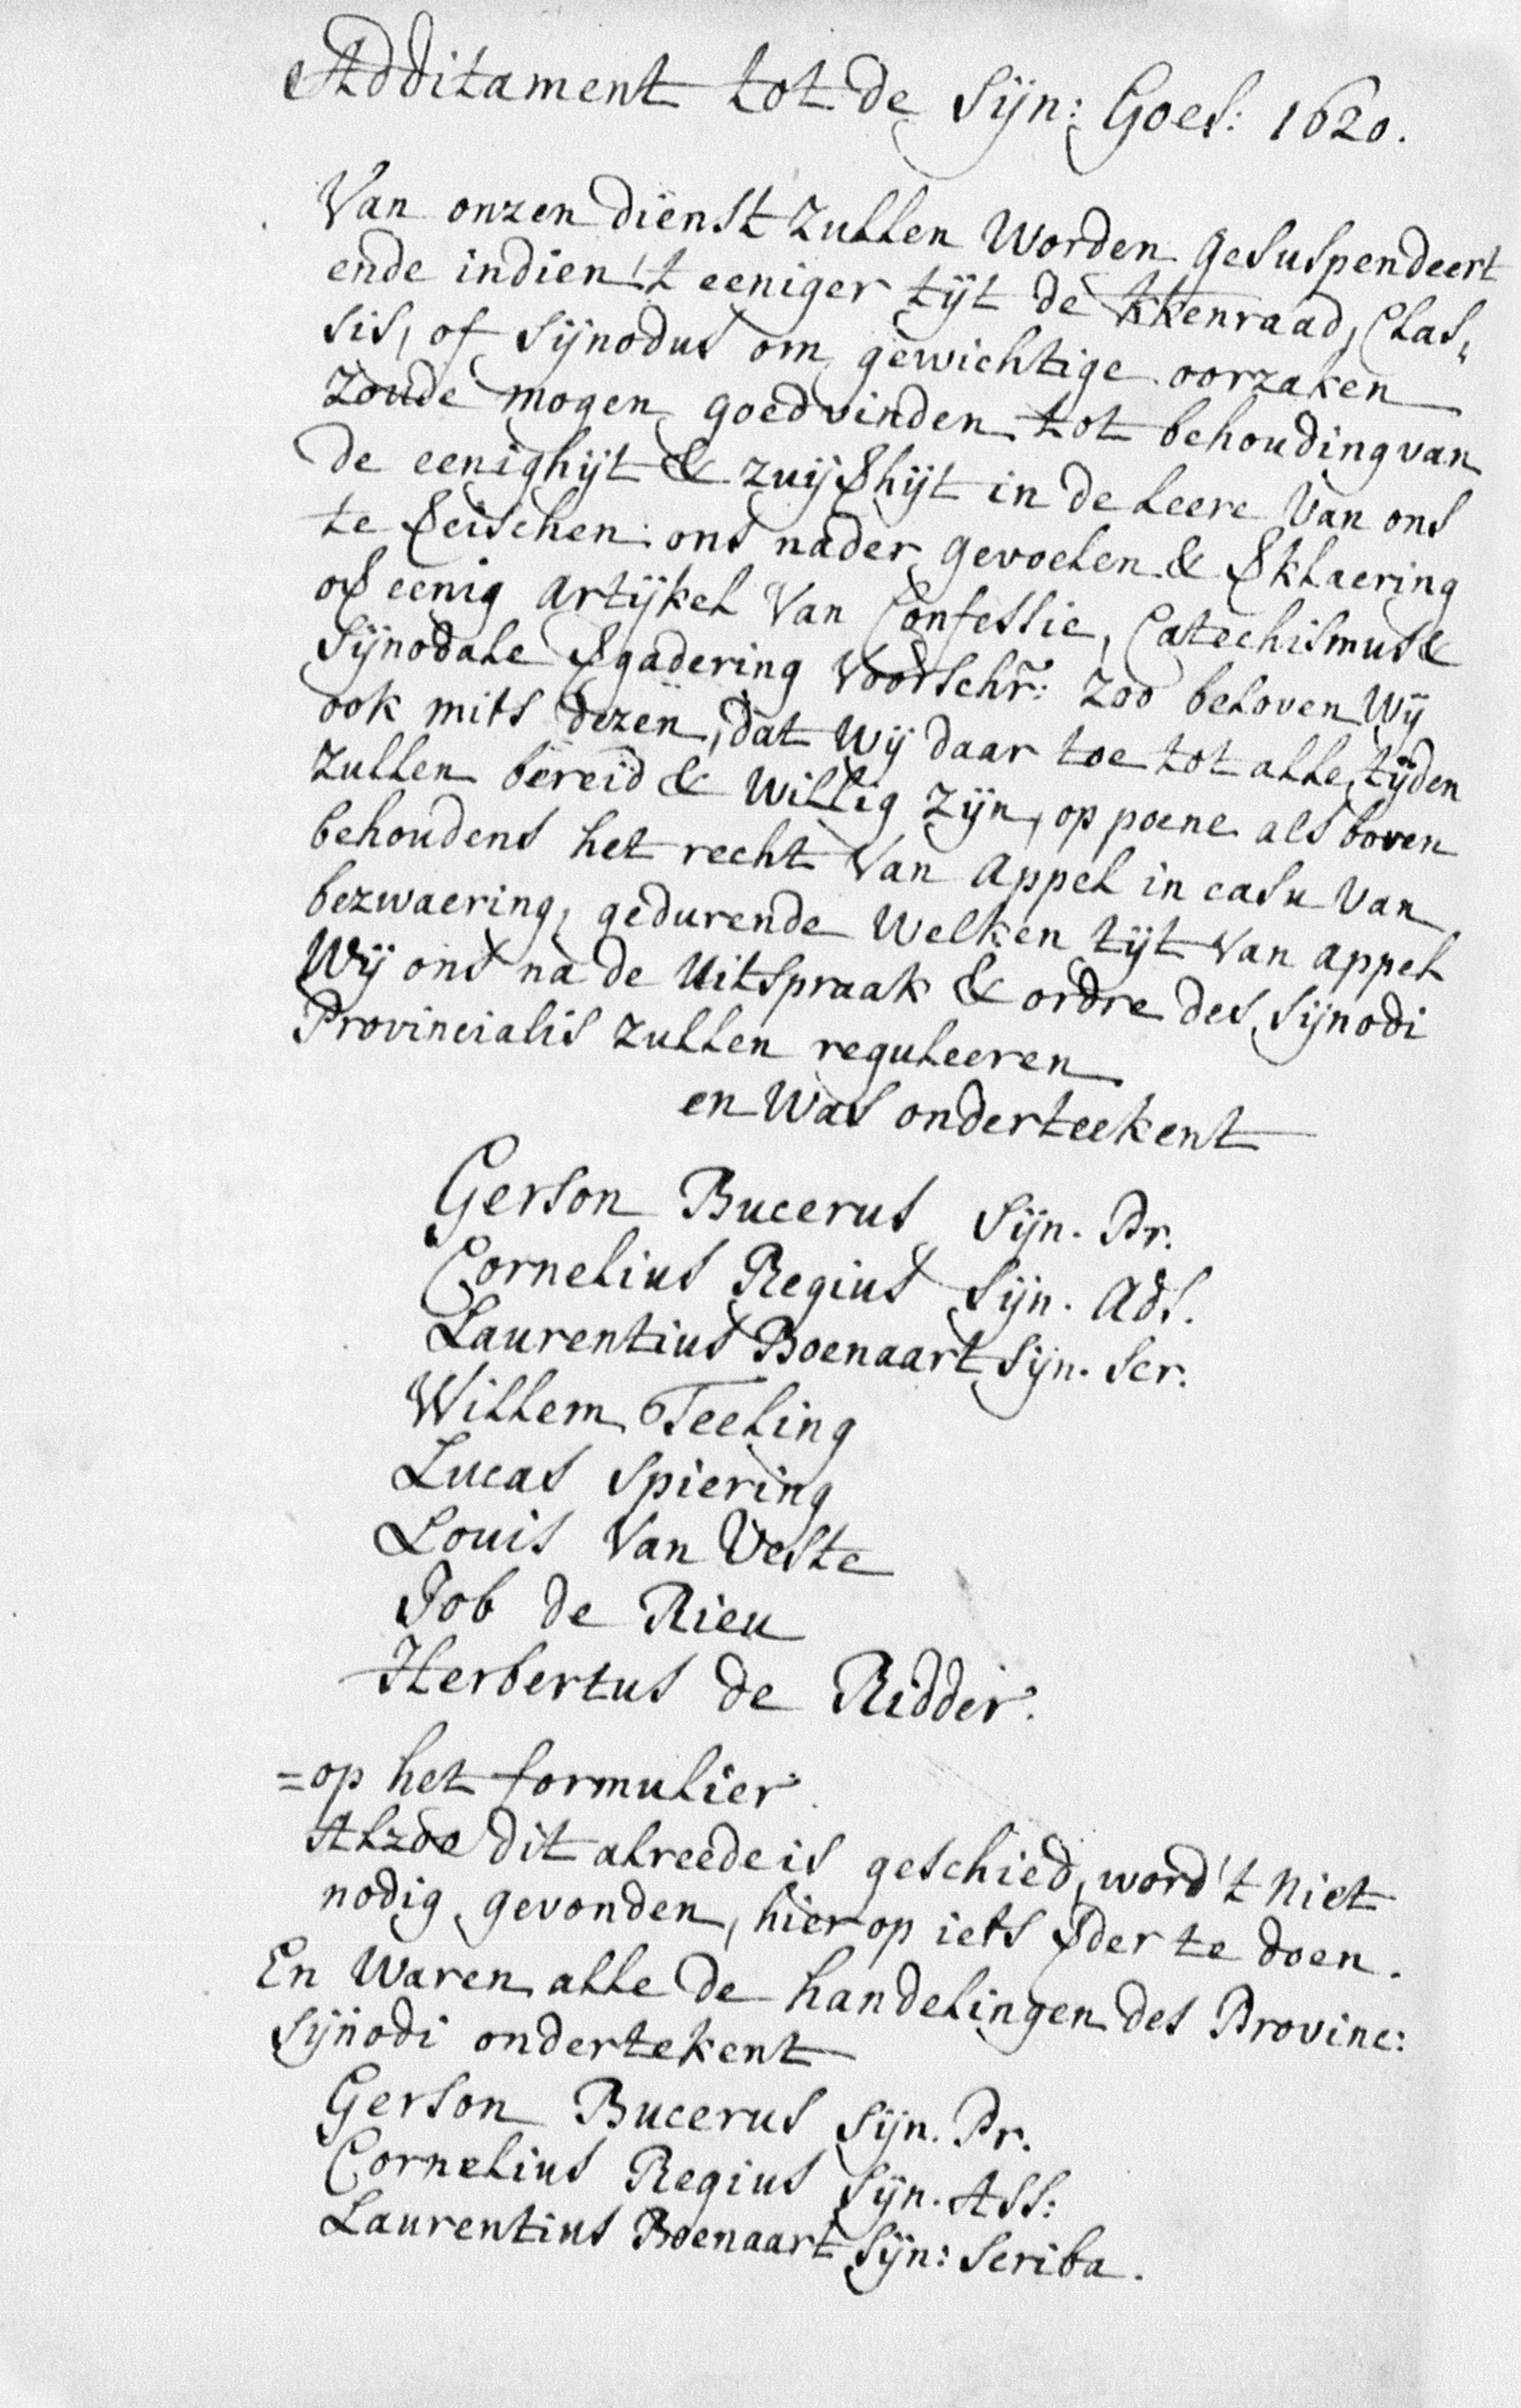 Additament tot de Sijn: Goes: 1620.
Van onzen dienst zullen worden gesuspendeert
ende indien 't eeniger tijt de kkenraad, Clas„
sis, of Sijnodus om gewichtige oorzaken
zoude mogen goedvinden tot behouding van
de eenighijt & zuijꝟhijt in de leere van ons
te ꝟeischen ons nader gevoelen & ꝟklaering
oꝟ eenig artijkel van Confessie, Catechismus &
Sijnodale ꝟgadering voorschr: zoo beloven wij
ook mits dezen, dat wij daar toe tot alle tijden
zullen bereid & willig zijn, op poene als boven
behoudens het recht van appel in casu van
bezwaering, gedurende welken tijt van appel
wij ons na de uitspraak & ordre des Sijnodi
Provincialis zullen reguleeren
en was onderteekent
Gerson Bucerus Sijn. Pr.
Cornelius Regius Sijn. Ads.
Laurentius Boenaart Sijn. Scr.
Willem Teeling
Lucas Spiering
Louis van Veste
Job de Rieu
Herbertus de Ridder.
=op het formulier.
Alzoo dit alreede is geschied, word 't niet
nodig gevonden, hier op iets ꝟder te doen.
En waren alle de handelingen des Provinc:
Sijnodi ondertekent
Gerson Bucerus Sijn. Pr.
Cornelius Regius Sijn. Ass:
Laurentius Boenaart Sijn: Scriba.